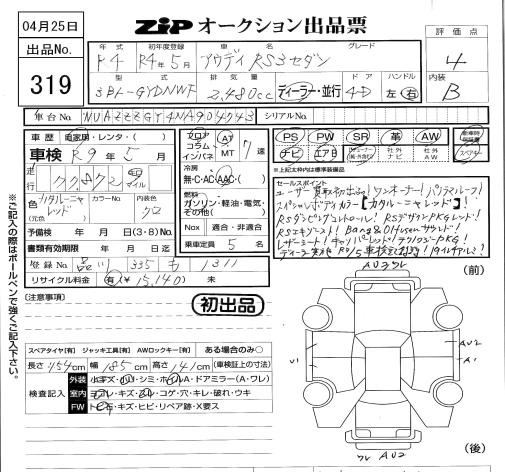 04月25日
ZiP オークション出品票
出品No.
319
年式 初年度登録 車名 グレード
R4 R4年5月 アウディ RS3セダン
型式 排気量 ドア ハンドル
3BA-GYDNWF 2,480cc ディーラー・並行 4D 左・右
評価点
4
内装
B
車台No. WUAZZZGY4NA904743 シリアルNo.
車歴 自家用・レンタ・( )
車検 R9年5月
走行 km マイル
色 カタルーニャレッド カラーNo. 内装色 クロ
(元色)
予備検 年 月 日(3・8)No.
書類有効期限 年 月 日迄
登録No. 品川 335 も 1311
リサイクル料金 有(¥15,140) 未
フロア
コラム
インパネ
AT
MT
7速
冷房
無・C・AC・AAC・( )
燃料
ガソリン・軽油・電気・
その他( )
Nox 適合・非適合
乗車定員 5 名
PS PW SR 革 AW
ナビ エアB 社外ナビ 社外AW
スペアキー
※上記太枠内は標準装備品
セールスポイント
レーザー 買取初出品!ワンオーナー!パノラマルーフ!
スペシャルボディカラー【カタルーニャレッド】!
RSダンピングコントロール!RSデザインPKGレッド!
RSエキゾースト!Bang&Olufsenサウンド!
初出品
[注意事項]
(前)
(後)
スペアタイヤ[有] ジャッキ工具[有] AWロックキー[有] ある場合のみ○
長さ 454cm 幅 185cm 高さ 141cm (車検証上の寸法)
検査記入
外装 小キズ・凹・シミ・ホイルA・ドアミラー(A・ワレ)
室内 ヨゴレ・キズ・凹・コゲ・穴・キレ・破れ・ウキ
FW トビ石・キズ・ヒビ・リペア跡・X要ス
U1
AU2
A1
※ご記入の際はボールペンで強くご記入下さい。